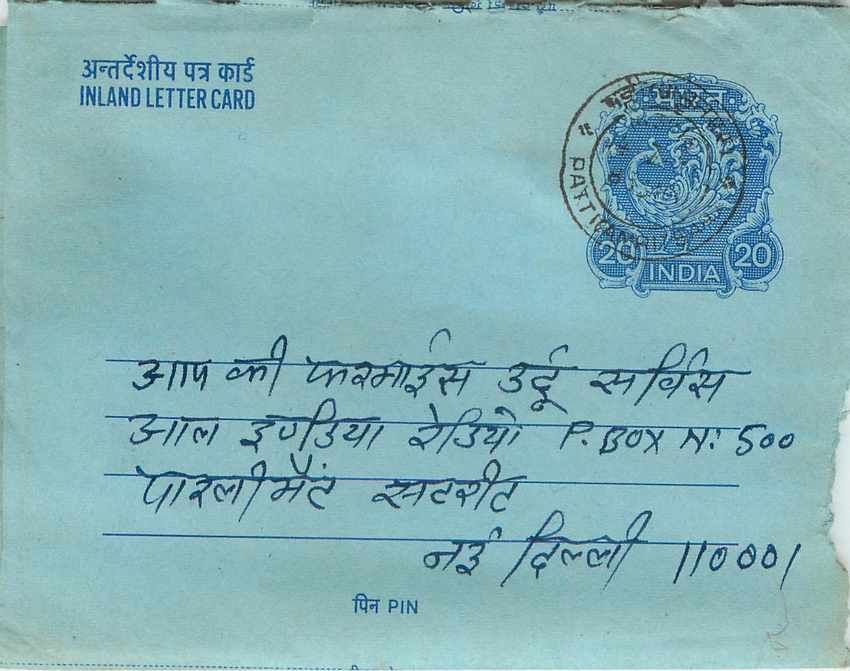 अन्तर्देशीय पत्र कार्ड
INLAND LETTER CARD
भारत
20 20
INDIA
आप की फरमाईस उर्दू सर्विस
आल इण्डिया रेडियो P. BOX N: 500
पारलीमैंट सटरीट
नई दिल्ली 110001
पिन PIN